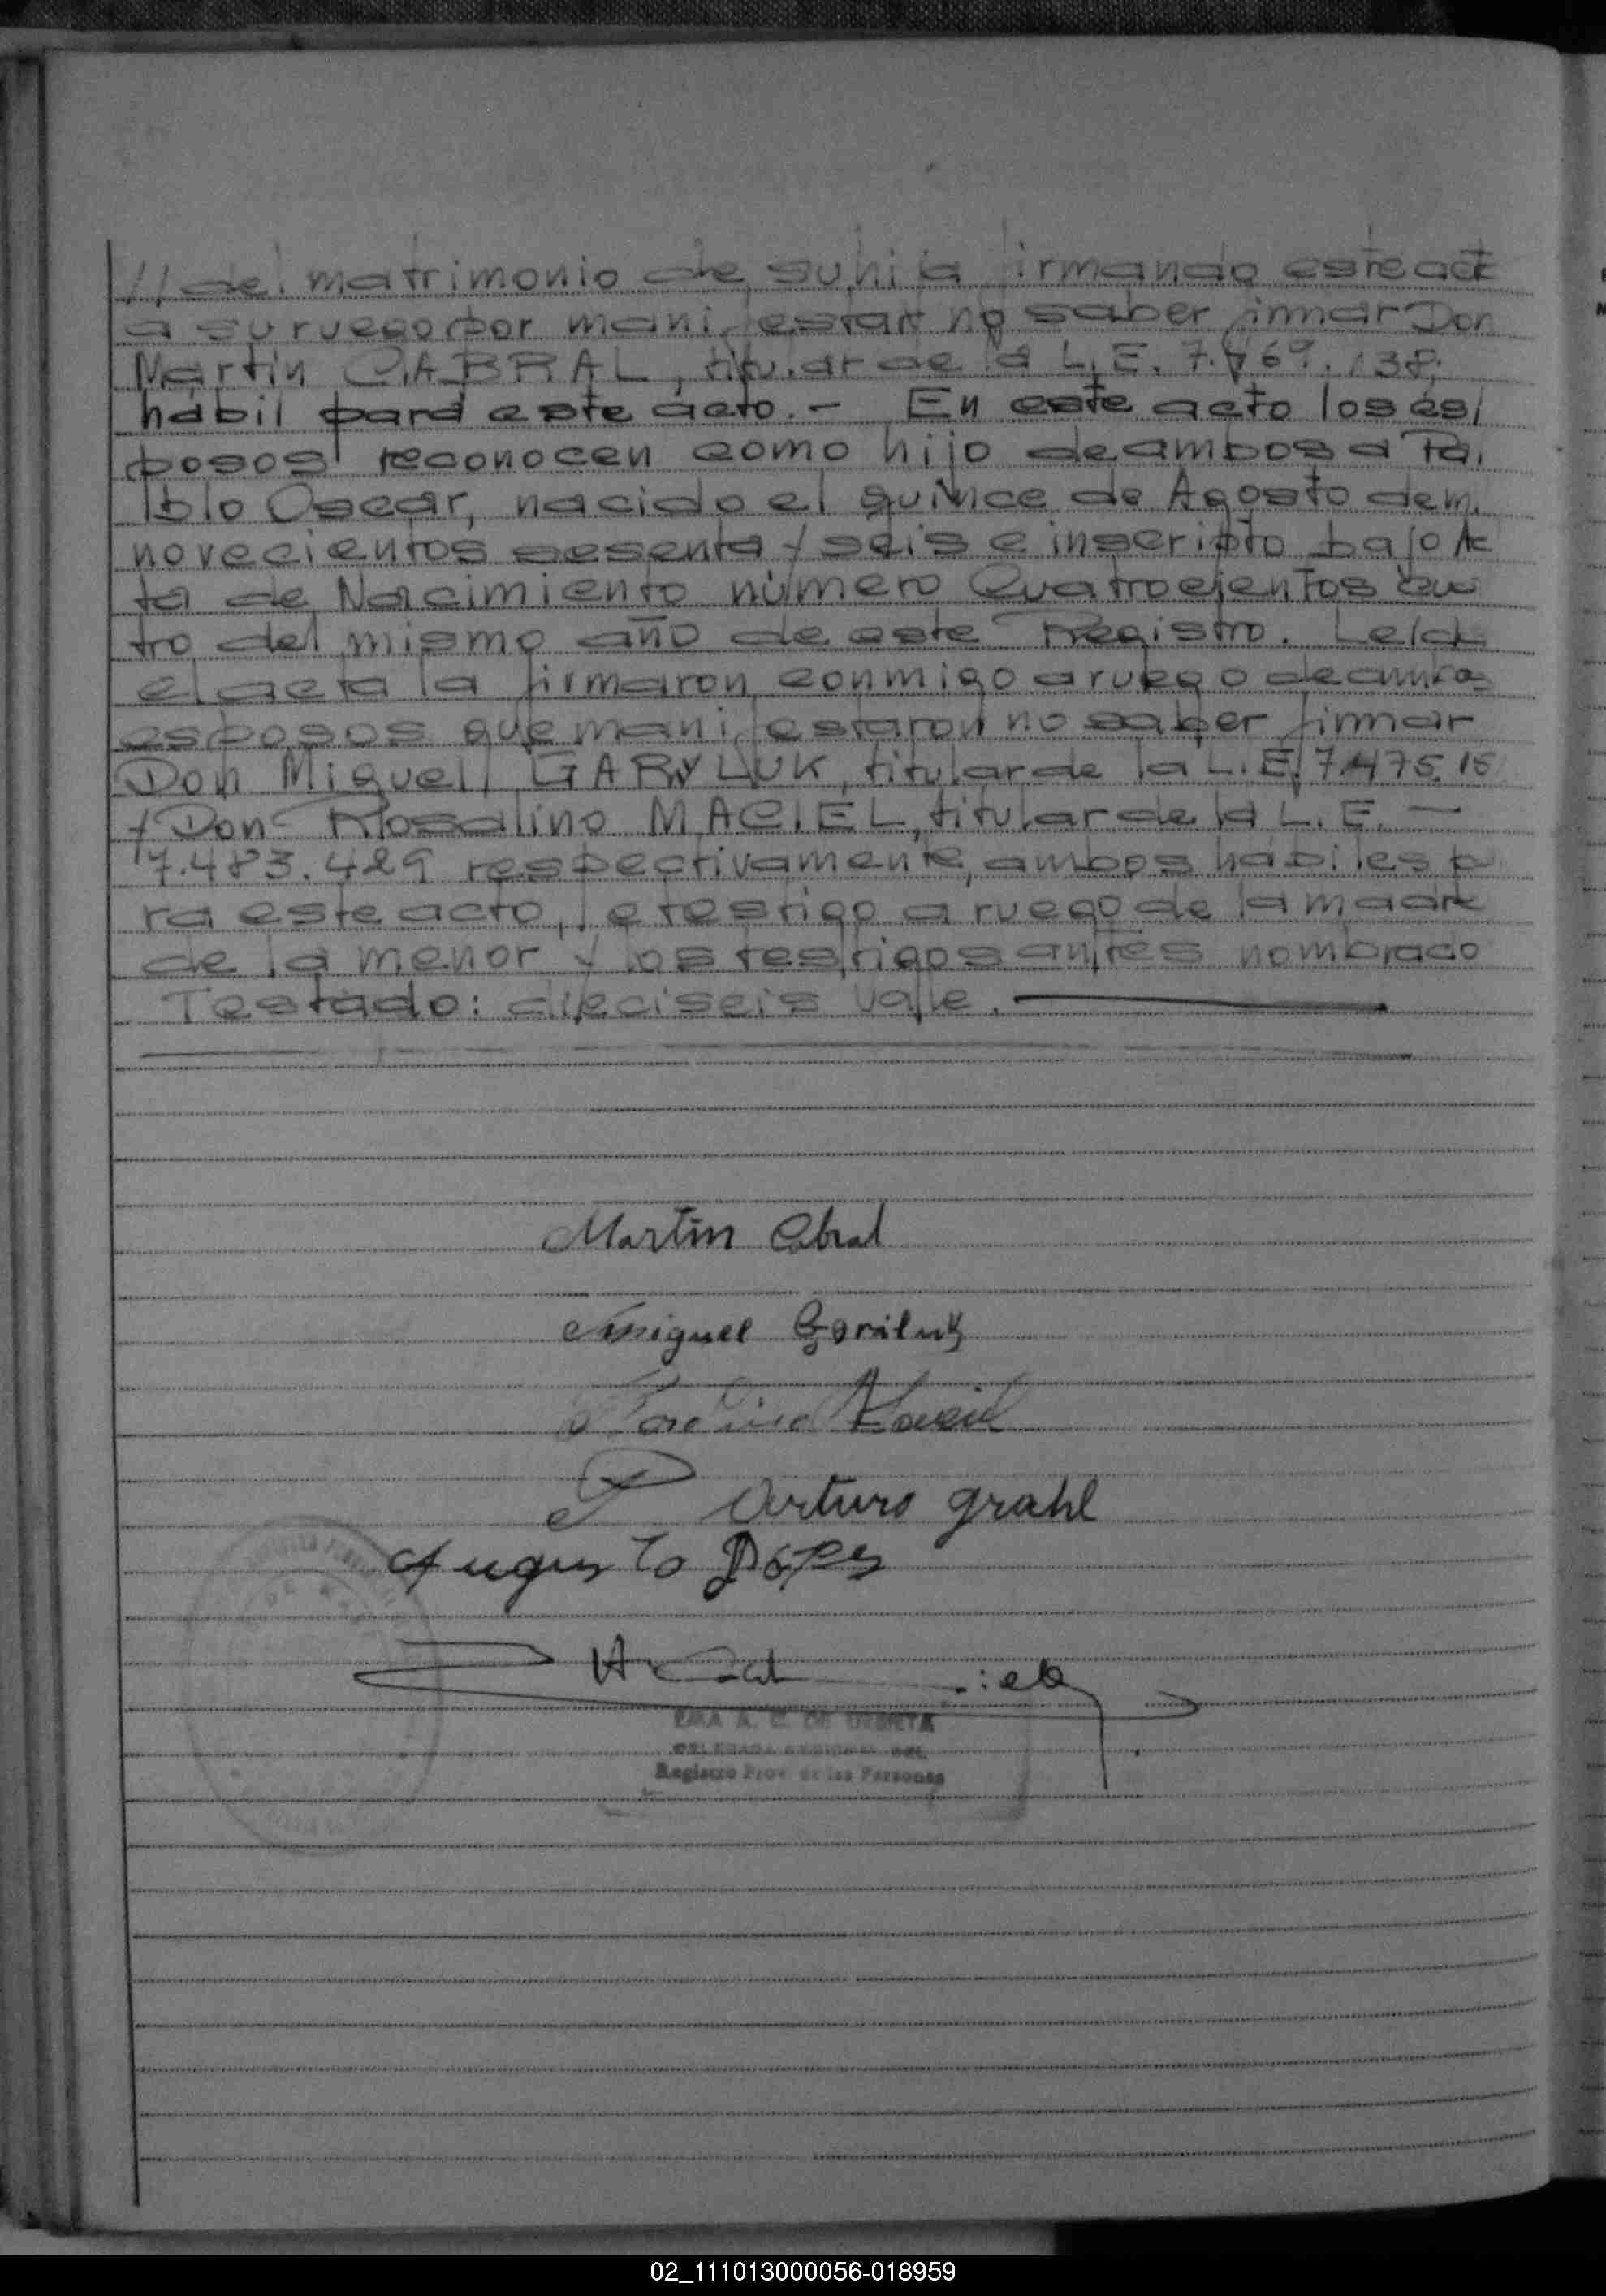 // del matrimonio de su hija firmando este act
a su ruego por manifestar no saber firmar Don
Martín CABRAL, titular de la L.E. 7.469.138,
hábil para este acto.- En este acto los es/
posos reconocen como hijo de ambos a Pa,
blo Oscar, nacido el quince de Agosto de m.
novecientos sesenta y seis e inscripto bajo Ac
ta de Nacimiento número Cuatrocientos cua
tro del mismo año de este Registro. Leída
el acta la firmaron conmigo a ruego de ambos
esposos que manifestaron no saber firmar
Don Miguel GARYLUK, titular de la L.E. 7.475.15
y Don Rosalino MACIEL, titular de la L.E. —
7.483.429 respectivamente, ambos hábiles p
ra este acto, el testigo a ruego de la madre
de la menor y los testigos antes nombrado
Testado: dieciseis vale.
Martín Cabral
Miguel Gariluk
Arturo grahl
Augusto
EMA A. C. DE URRETA
DELEGADA REGIONAL DEL
Registro Prov. de las Personas
02_111013000056-018959